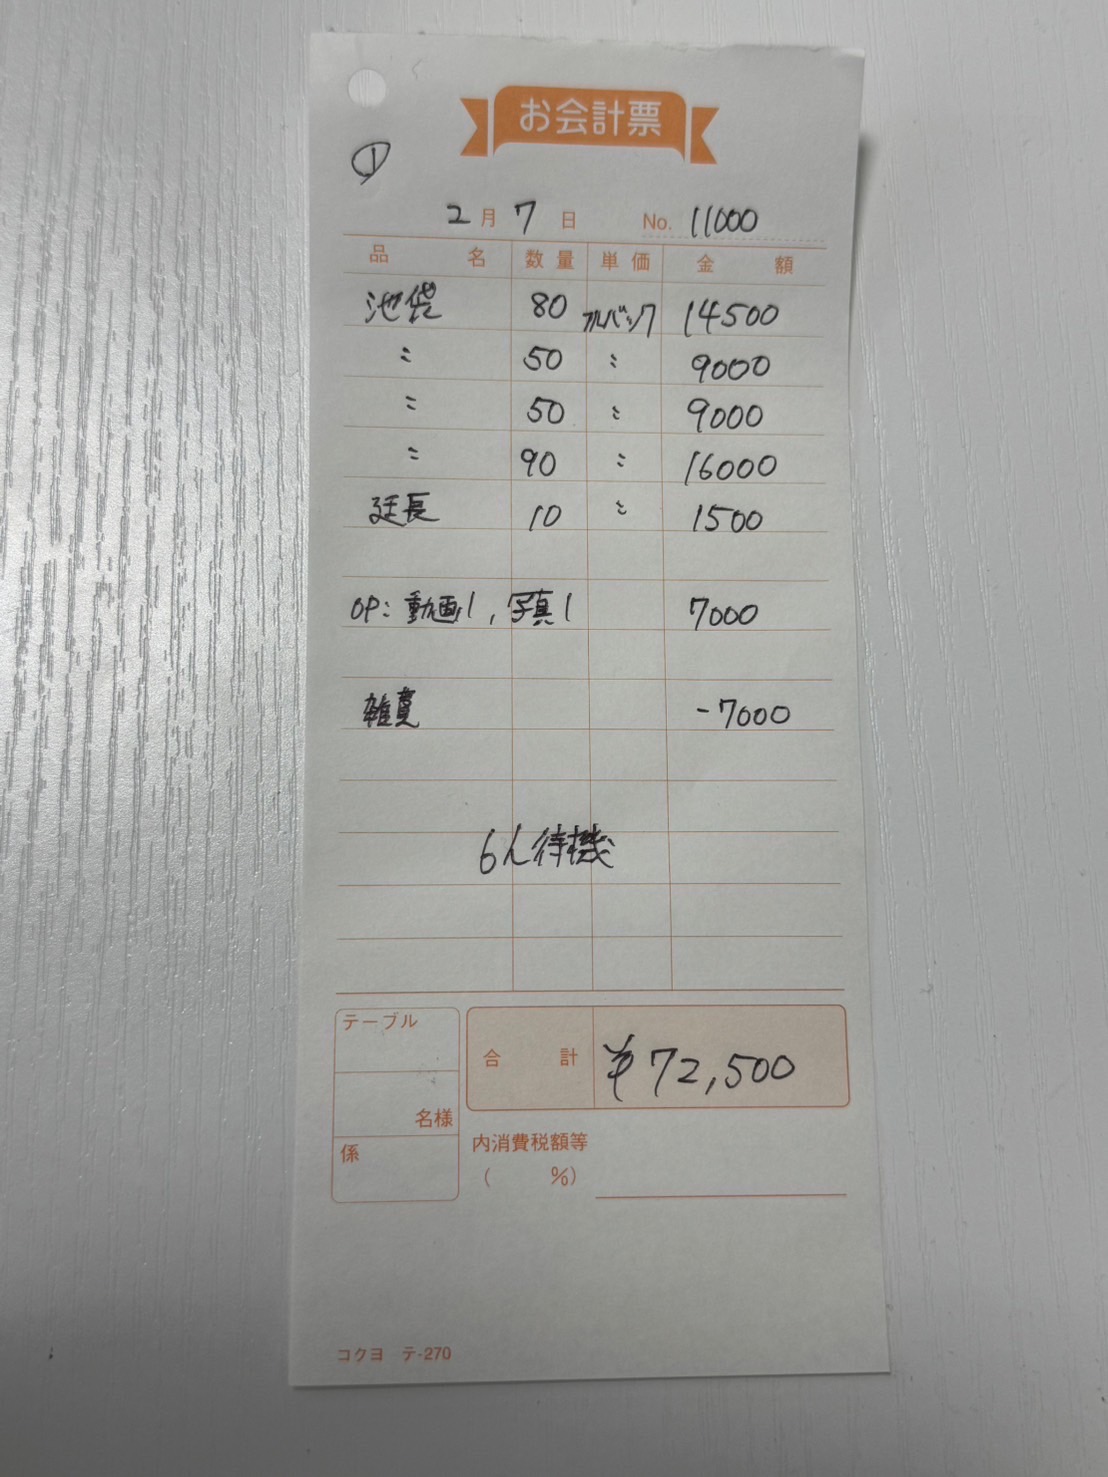 お会計票
①
2月7日 No. 11000
品名 数量 単価 金額
池袋 80 フルバック 14500
〃 50 〃 9000
〃 50 〃 9000
〃 90 〃 16000
延長 10 〃 1500
OP:動画1,写真1 7000
雑費 -7000
6人待機
テーブル
名様
係
合計 ¥72,500
内消費税額等
( %)
コクヨ テ-270